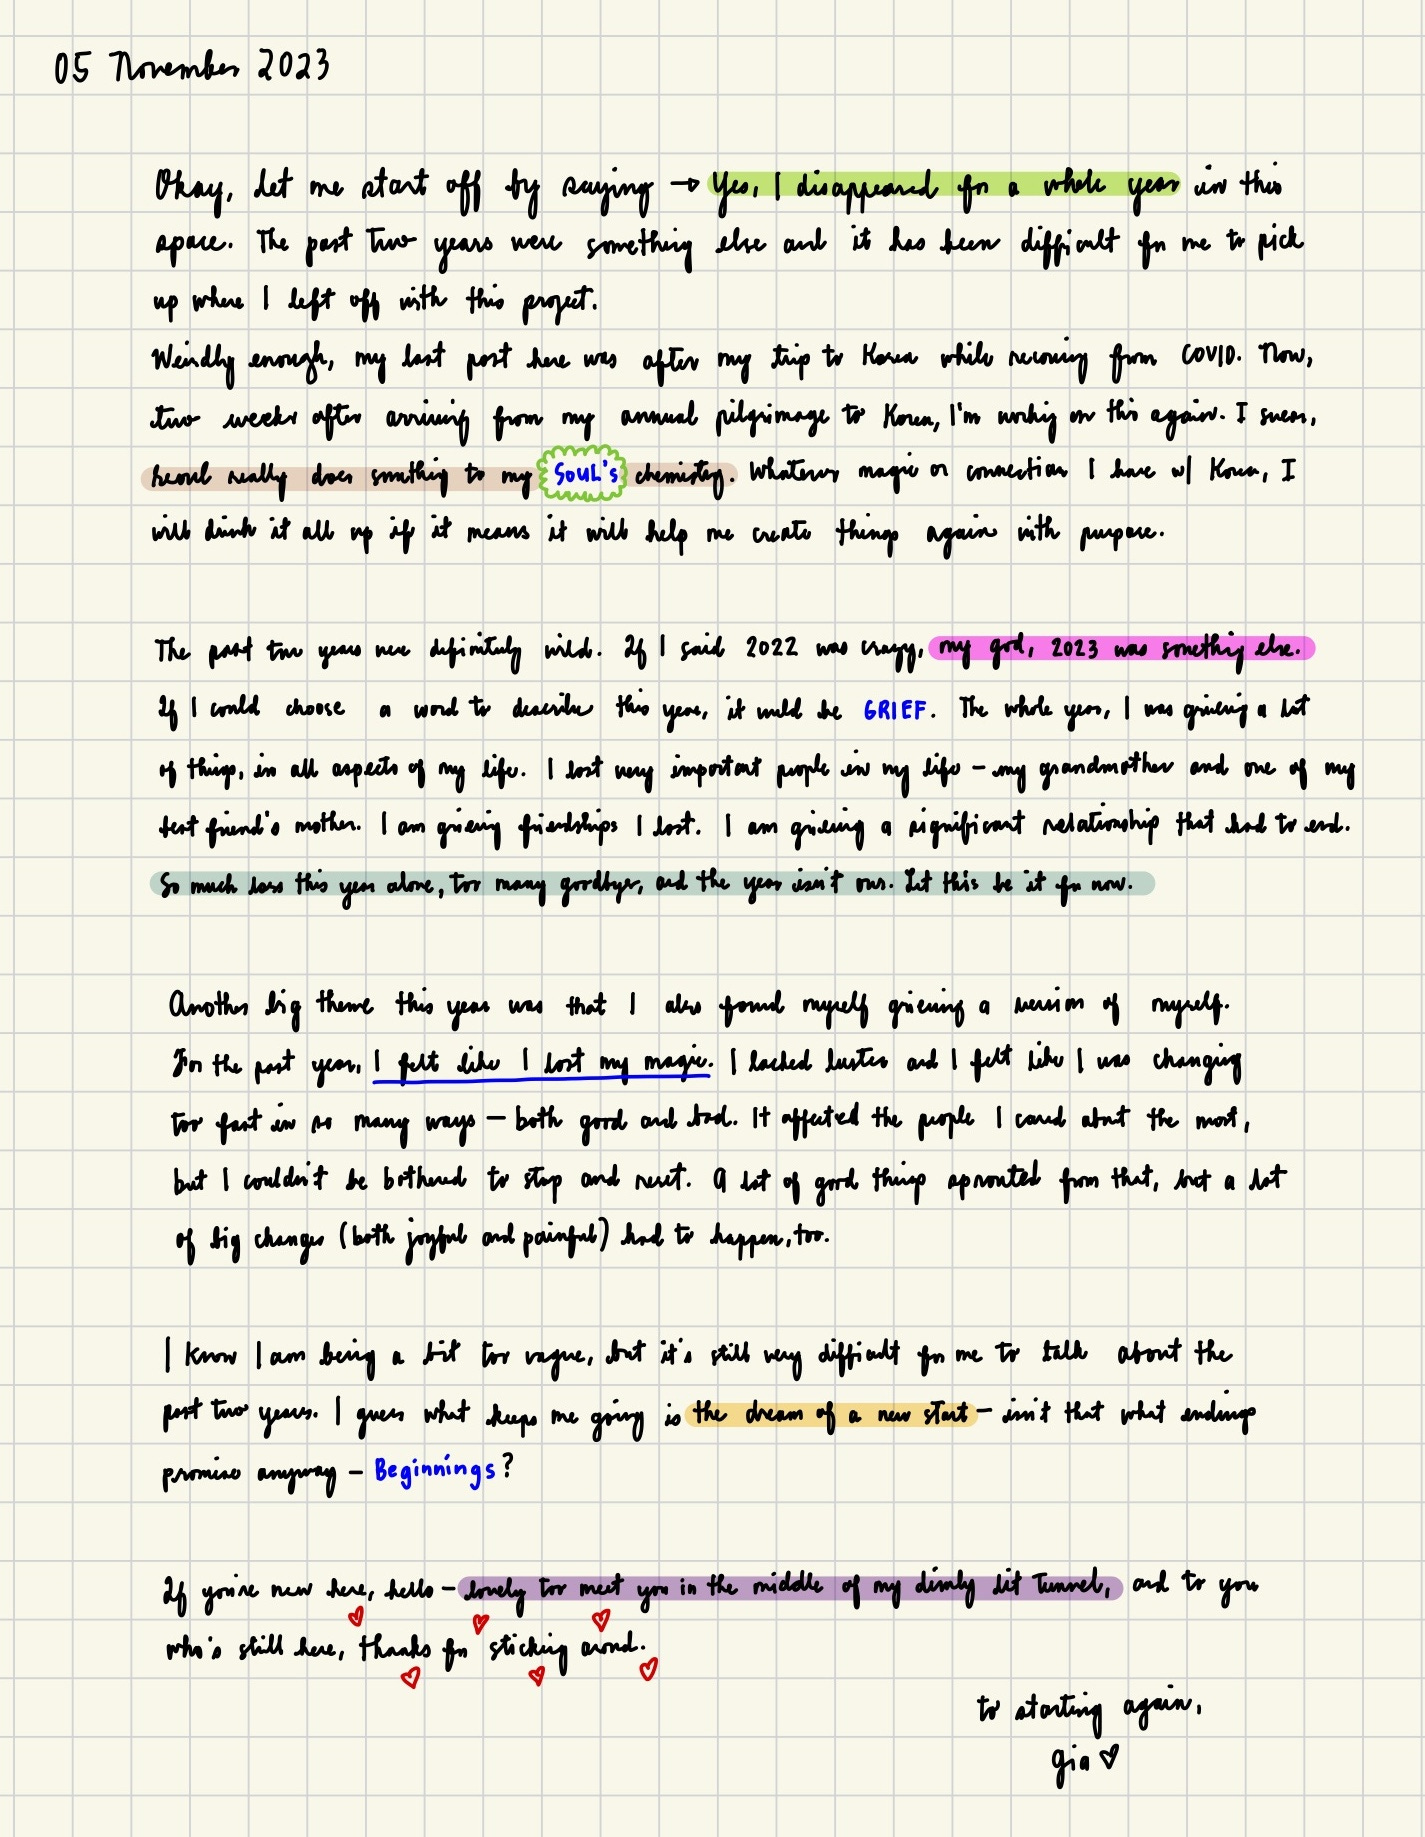 05 November 2023
Okay, let me start off by saying → Yes, I disappeared for a whole year in this
space. The past two years were something else and it has been difficult for me to pick
up where I left off with this project.
Weirdly enough, my last post here was after my trip to Korea while recovering from COVID. Now,
two weeks after arriving from my annual pilgrimage to Korea, I'm working on this again. I swear,
seoul really does something to my SOUL's chemistry. Whatever magic or connection I have w/ Korea, I
will drink it all up if it means it will help me create things again with purpose.
The past two years were definitely wild. If I said 2022 was crazy, my god, 2023 was something else.
If I could choose a word to describe this year, it would be GRIEF. The whole year, I was grieving a lot
of things, in all aspects of my life. I lost very important people in my life – my grandmother and one of my
best friend's mother. I am grieving friendships I lost. I am grieving a significant relationship that had to end.
So much loss this year alone, too many goodbyes, and the year isn't over. Let this be it for now.
Another big theme this year was that I also found myself grieving a version of myself.
For the past year, I felt like I lost my magic. I lacked luster and I felt like I was changing
too fast in so many ways – both good and bad. It affected the people I cared about the most,
but I couldn't be bothered to stop and reset. A lot of good things sprouted from that, but a lot
of big changes (both joyful and painful) had to happen, too.
I know I am being a bit too vague, but it's still very difficult for me to talk about the
past two years. I guess what keeps me going is the dream of a new start – isn't that what endings
promise anyway – Beginnings?
If you're new here, hello – lovely too meet you in the middle of my dimly lit tunnel, and to you
who's still here, thanks for sticking around.
to starting again,
gia ♡